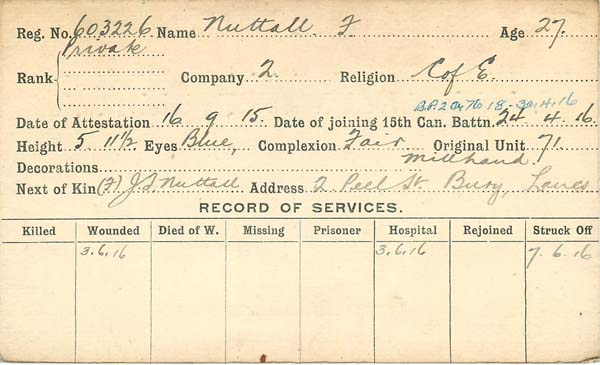 Reg. No. 603226 Name Nuttall F Age 27.
Private
Rank Company 2 Religion C of E.
18-30.4.16
Date of Attestation 16 9 15. Date of joining 15th Can. Battn. 24 4 16.
Height 5 11½ Eyes Blue, Complexion Fair Original Unit 71.
Decorations Millhand
Next of Kin (F) J.F Nuttall Address 2 Peel St Bury, Lancs
RECORD OF SERVICES.
Killed Wounded Died of W. Missing Prisoner Hospital Rejoined Struck Off
3.6.16 3.6.16 7.6.16